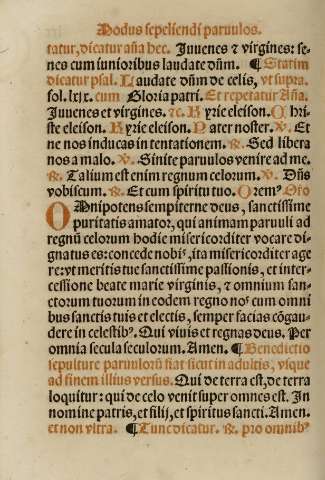 Modus sepeliendi paruulos.
tatur, dicatur aña hec. Iuuenes ⁊ virgines: se-
nes cum iunioribus laudate dñm. ¶ Statim
dicatur psal. Laudate dñm de celis, vt supra.
fol. lxix. cum Gloria patri. Et repetatur Aña.
Iuuenes et virgines. ⁊c. Kyrie eleison. Chri-
ste eleison. Kyrie eleison. Pater noster. ℣. Et
ne nos inducas in tentationem. ℟. Sed libera
nos a malo. ℣. Sinite paruulos venire ad me.
℟. Talium est enim regnum celorum. ℣. Dñs
vobiscum. ℟. Et cum spiritu tuo. Oremꝰ. Oro
OMnipotens sempiterne deus, sanctissime
puritatis amator, qui animam paruuli ad
regnū celorum hodie misericorditer vocare di-
gnatus es: concede nobiꝰ, ita misericorditer age
re: vt meritis tue sanctissime passionis, et inter-
cessione beate marie virginis, ⁊ omnium san-
ctorum tuorum in eodem regno noꝰ cum omni
bus sanctis tuis et electis, semper facias cōgau-
dere in celestibꝰ. Qui viuis et regnas deus. Per
omnia secula seculorum. Amen. ¶ Benedictio
sepulture paruulorū fiat sicut in adultis, vsque
ad finem illius versus. Qui de terra est, de terra
loquitur: qui de celo venit super omnes est. In
nomine patris, et filij, et spiritus sancti. Amen.
et non vltra. ¶ Tunc dicatur. ℟. pro omnibꝰ